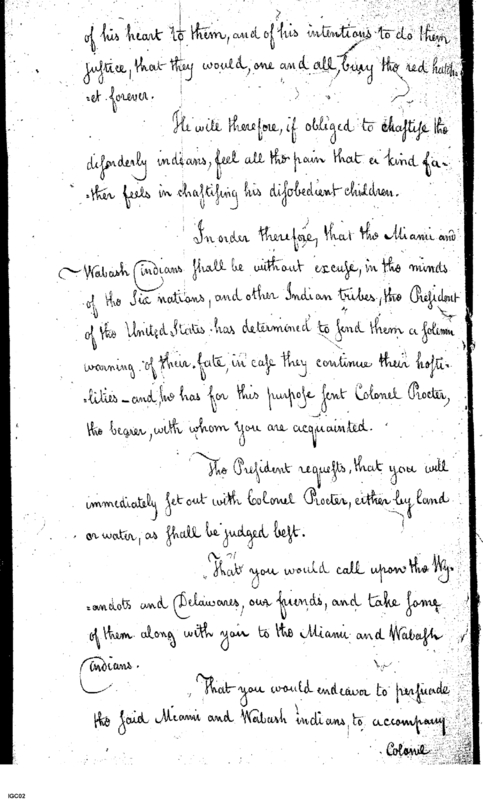 of his heart to them, and of his intentions to do them
justice, that they would, one and all, bury the red hatch-
-et forever.
He will therefore, if obliged to chastise the
disorderly indians, feel all the pain that a kind fa-
-ther feels in chastising his disobedient children.
In order therefore, that the Miami and
Wabash indians shall be without excuse, in the minds
of the Six nations, and other Indian tribes, the President
of the United States has determined to send them a solemn
warning of their fate, in case they continue their hosti-
-lities - and he has for this purpose sent Colonel Procter,
the bearer, with whom you are acquainted.
The President requests, that you will
immediately set out with Colonel Procter, either by land
or water, as shall be judged best.
That you would call upon the Wy-
-andots and Delawares, our friends, and take some
of them along with you to the Miami and Wabash
indians.
That you would endeavor to persuade
the said Miami and Wabash indians, to accompany
Colonel
IGC02